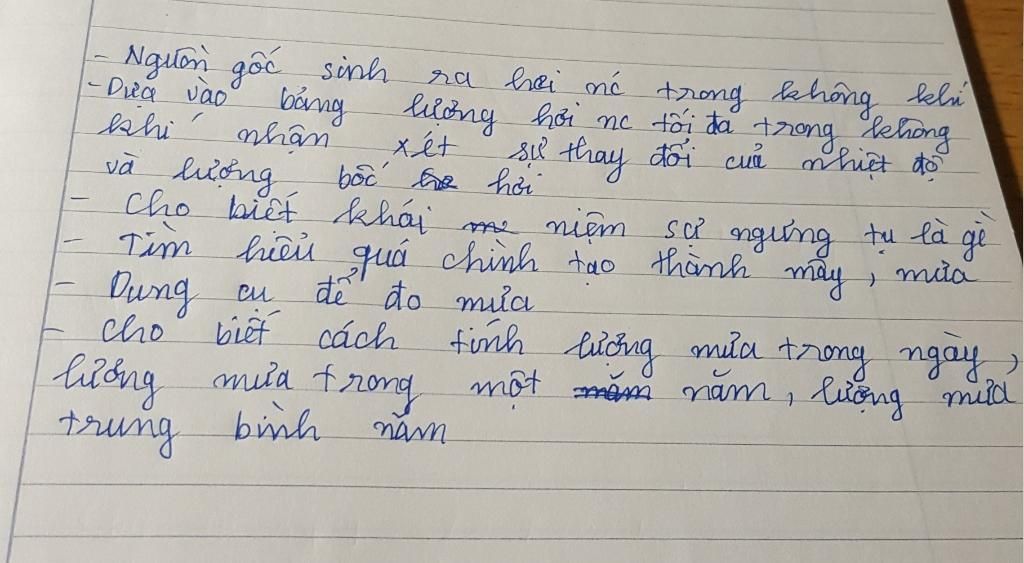 - Nguồn gốc sinh ra hơi nc trong không khí
- Dựa vào bảng lượng hơi nc tối đa trong không
khí nhận xét sự thay đổi của nhiệt độ
và lượng bốc hơi
- Cho biết khái niệm sự ngưng tụ là gì
- Tìm hiểu quá chình tạo thành mây, mưa
- Dụng cụ để đo mưa
- Cho biết cách tính lượng mưa trong ngày,
lượng mưa trong một năm, lượng mưa
trung bình năm